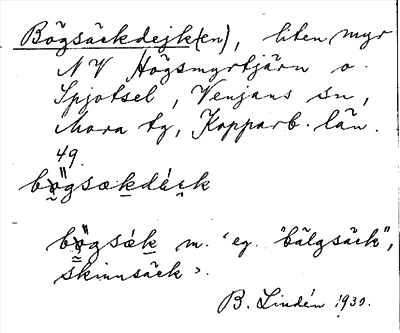 Bögsäckdejk(en), liten myr
NV Högsmyrtjärn o.
Spjotsel, Venjans sn,
Mora tg, Kopparb. län.
49.
bögsækdéi̯k
bögsæ̀k m. ‘eg. "bälgsäck",
skinnsäck’.
B. Lindén 1930.